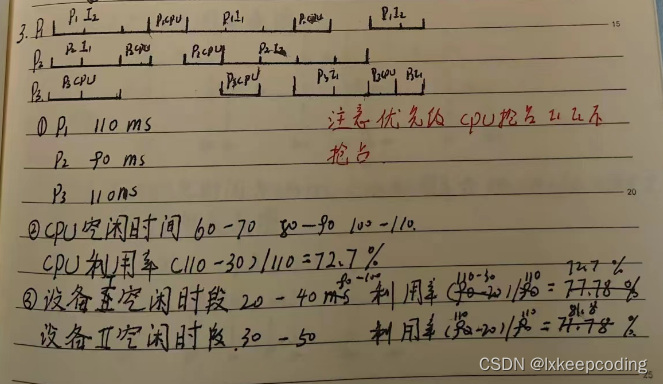 3. P₁ P₁ I₂ P₁CPU P₁I₁ P₁CPU P₁I₂ 15
P₂ P₂ I₁ P₂CPU P₂CPU P₂ I₂
P₃ P₃ CPU P₃CPU P₃I₁ P₃CPU P₃I₁
① P₁ 110 ms 注意优先级 CPU抢占 I₁ I₂不
P₂ 90 ms 抢占
P₃ 110ms 20
②CPU空闲时间 60-70 80-90 100-110.
CPU利用率 (110-30)/110=72.7%
90-100 110-30 110 72.7 %
③设备I空闲时段 20-40ms 利用率(90-20)/90=77.78%
110 110 81.8
设备II空闲时段.30-50 利用率(90-20)/90=77.78%
CSDN @lxkeepcoding
25